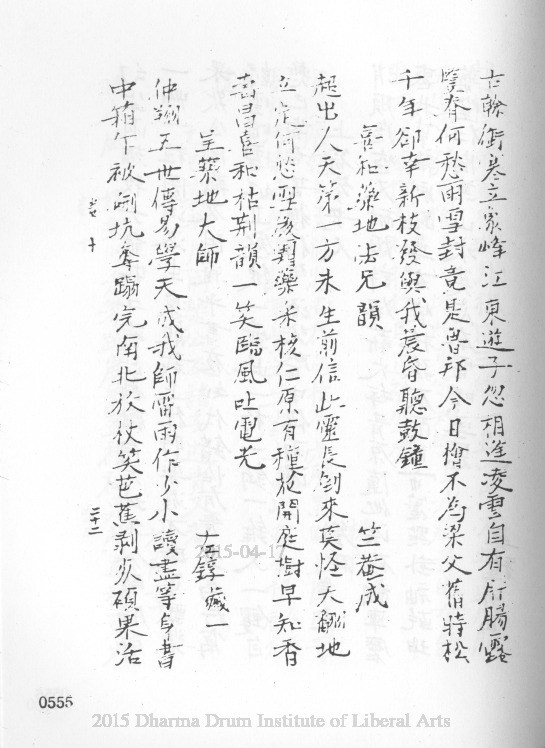 古幹衝寒立眾峰江東遊子忽相逢凌雲自有肝腸露
豎脊何愁雨雪封竟是魯邦今日檜不為梁父舊時松
千年卻幸新枝發與我晨昏聽鼓鐘
喜和藥地法兄韻 竺菴成
超出人天第一方未生前信此靈長到來莫怪大翻地
立定何愁堅後藥朵核仁原有種於開庭樹早知香
壽昌喜和枯荊韻一笑臨風吐電光
呈藥地大師 藏一
仲翔五世傳易學天成我師雷雨作少小讀盡等身書
中箱下被坑奪蹋完南北放杖笑芭蕉剥炎碩果活
二十二
0555
2015-04-17
2015 Dharma Drum Institute of Liberal Arts